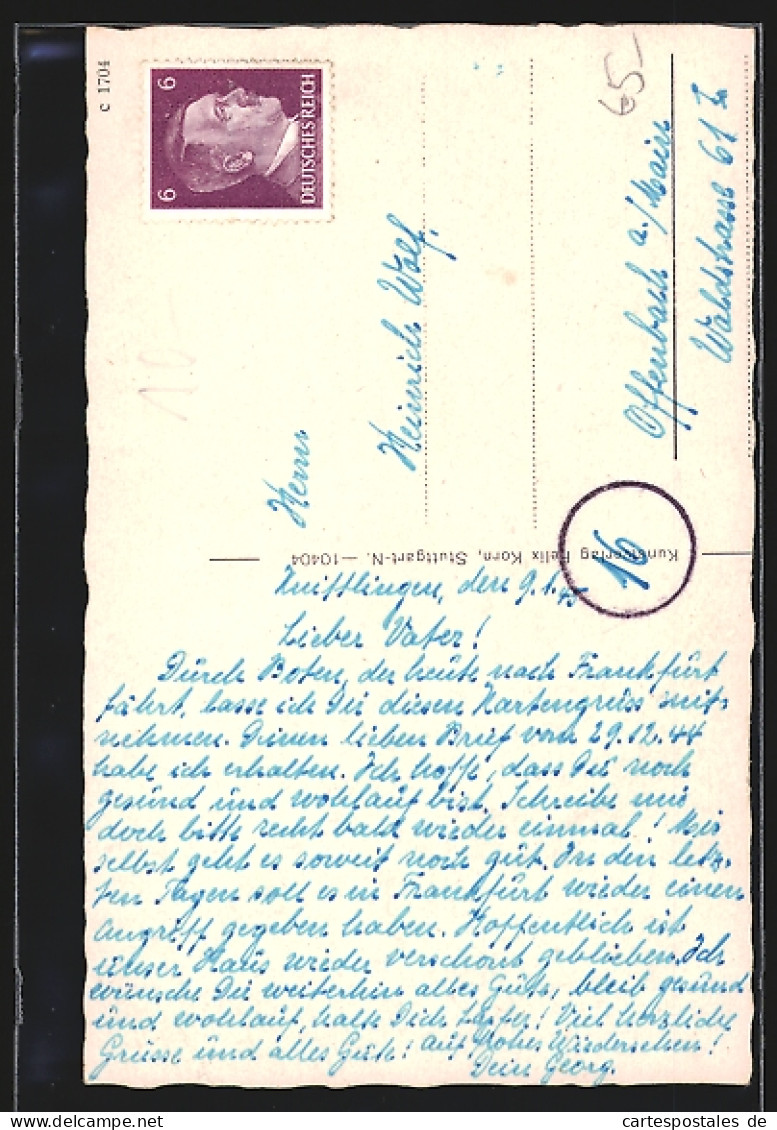 c 1704
6 6
DEUTSCHES REICH
65-
10-
Herrn
Heinrich Wolf.
Offenbach a./Main
Waldstrasse 61 I.
Kunstverlag Felix Korn, Stuttgart-N. — 10404
16
Knittlingen, den 9.1.45
Lieber Vater!
Durch Boten, der heute nach Frankfurt
fährt, lasse ich Dir diesen Kartengruss mit-
nehmen. Deinen lieben Brief vom 29.12.44
habe ich erhalten. Ich hoffe, dass Du noch
gesund und wohlauf bist. Schreibe mir
doch bitte recht bald wieder einmal! Mir
selbst geht es soweit noch gut. In den letz-
ten Tagen soll es in Frankfurt wieder einen
Angriff gegeben haben. Hoffentlich ist
unser Haus wieder verschont geblieben. Ich
wünsche Dir weiterhin alles Gute, bleib gesund
und wohlauf, halte Dich tapfer! Viel herzliche
Grüsse und alles Gute! auf frohes Wiedersehen!
Dein Georg.
cartespostales de